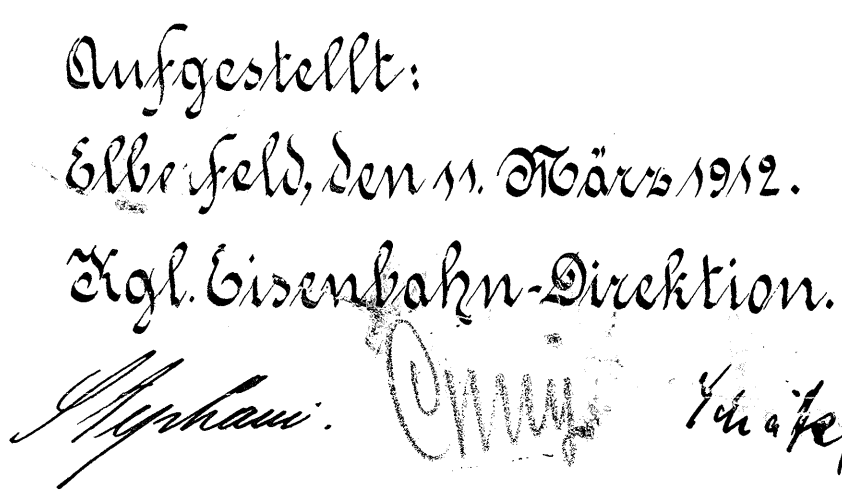 Aufgestellt:
Elberfeld, den 11. März 1912.
Kgl. Eisenbahn-Direktion.
Stephani.